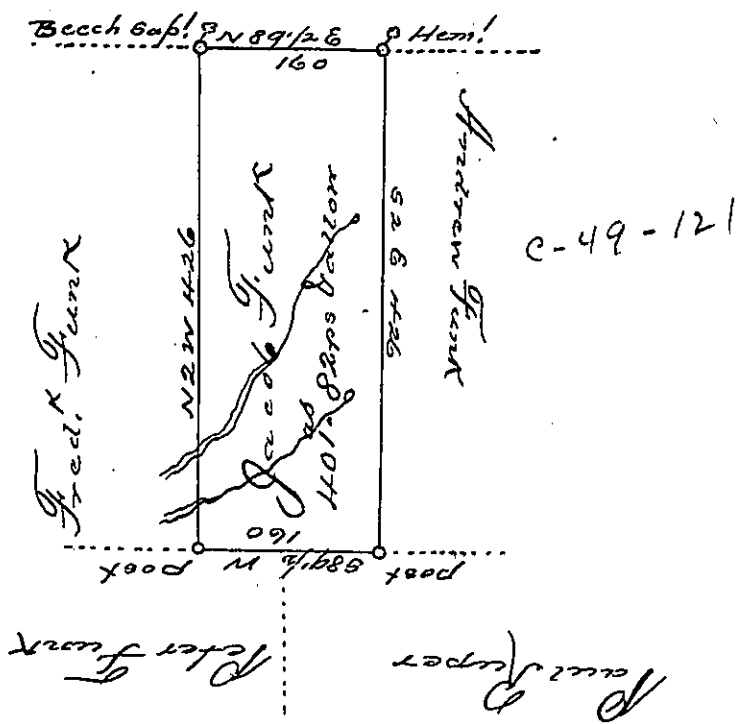 Beech Sap!
N 89 1/2 E
Hem!
160
Fred.k Funk
N 2 W 426
Jacob Funk
401 ps & allow
S 2 E 426
Andrew Funk
C-49-121
160
S 89 1/2 W
post
post
Peter Funk
Paul